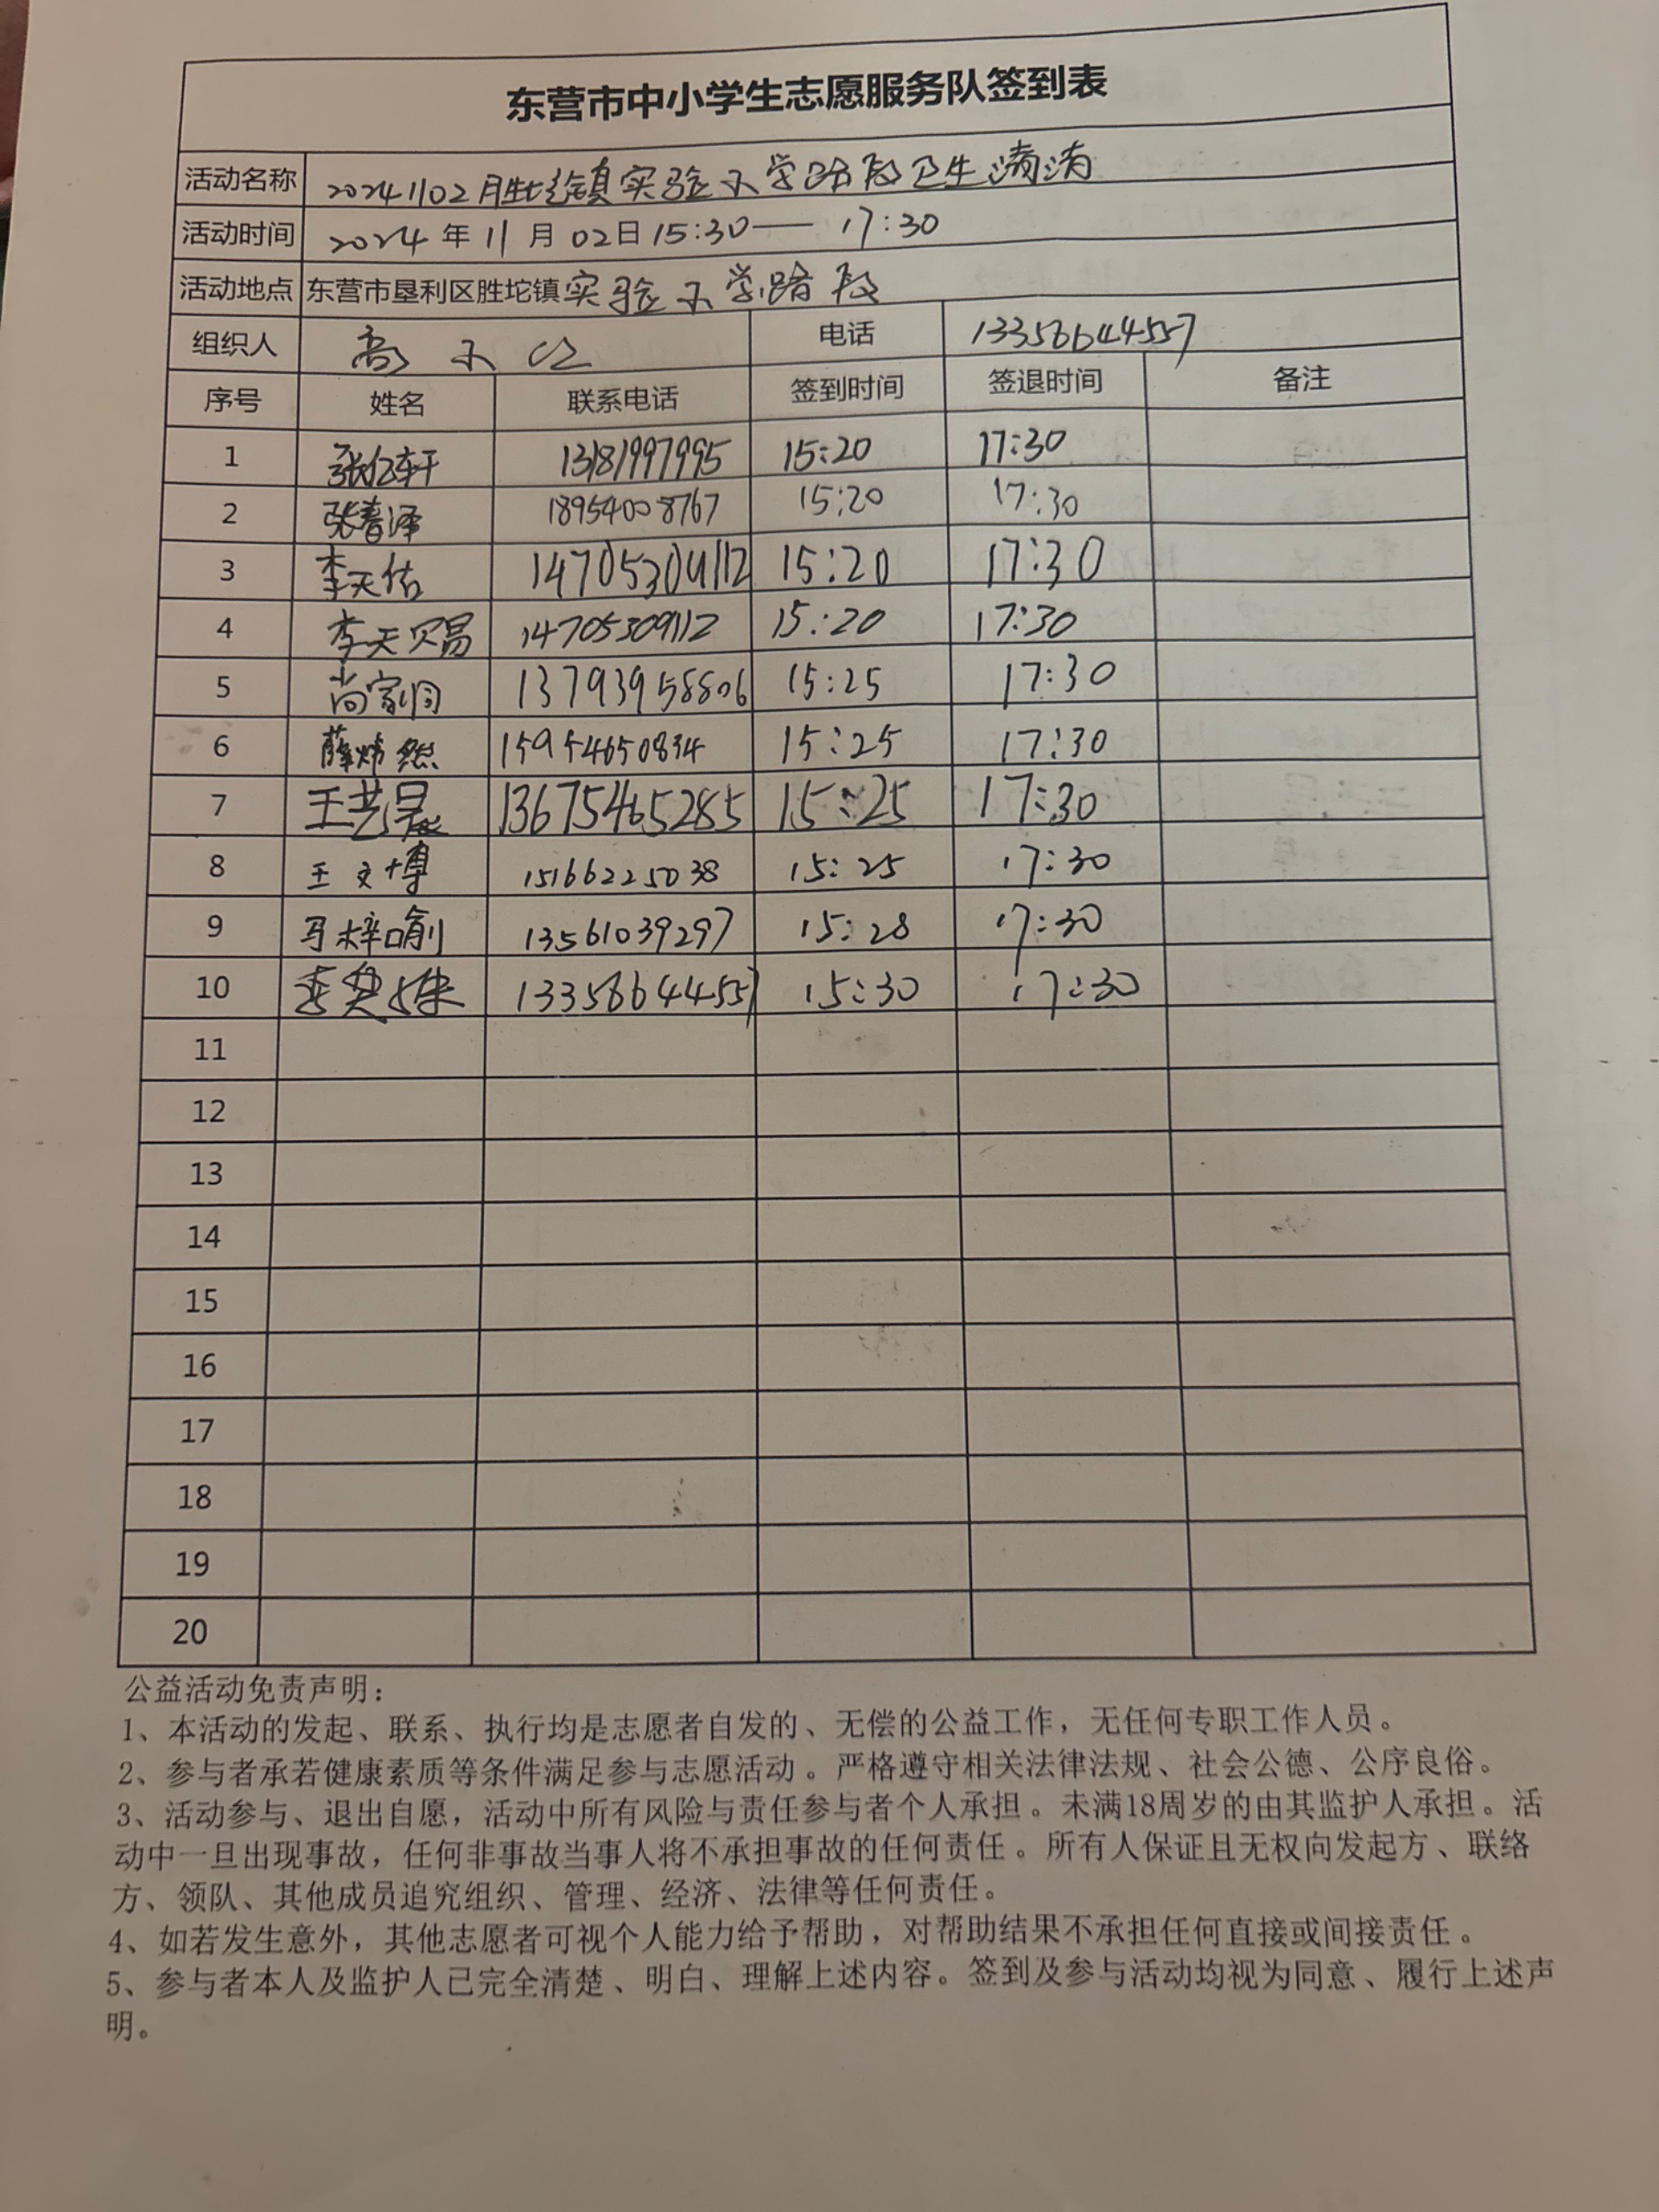 东营市中小学生志愿服务队签到表
活动名称 20241102胜坨镇实验小学路段卫生清洁
活动时间 2024年11月02日15:30——17:30
活动地点 东营市垦利区胜坨镇实验小学路段
组织人 高 电话 13356644557
序号 姓名 联系电话 签到时间 签退时间 备注
1 张亿轩 13181997995 15:20 17:30
2 张春泽 18954008767 15:20 17:30
3 李天佑 14705309112 15:20 17:30
4 李天赐 14705309112 15:20 17:30
5 尚家同 13793958806 15:25 17:30
6 薛炜然 15954650834 15:25 17:30
7 王艺晨 13675465285 15:25 17:30
8 王文博 15166225038 15:25 17:30
9 马梓喻 13561039297 15:28 17:30
10 13356644557 15:30 17:30
11
12
13
14
15
16
17
18
19
20
公益活动免责声明：
1、本活动的发起、联系、执行均是志愿者自发的、无偿的公益工作，无任何专职工作人员。
2、参与者承若健康素质等条件满足参与志愿活动。严格遵守相关法律法规、社会公德、公序良俗。
3、活动参与、退出自愿，活动中所有风险与责任参与者个人承担。未满18周岁的由其监护人承担。活
动中一旦出现事故，任何非事故当事人将不承担事故的任何责任。所有人保证且无权向发起方、联络
方、领队、其他成员追究组织、管理、经济、法律等任何责任。
4、如若发生意外，其他志愿者可视个人能力给予帮助，对帮助结果不承担任何直接或间接责任。
5、参与者本人及监护人已完全清楚、明白、理解上述内容。签到及参与活动均视为同意、履行上述声
明。